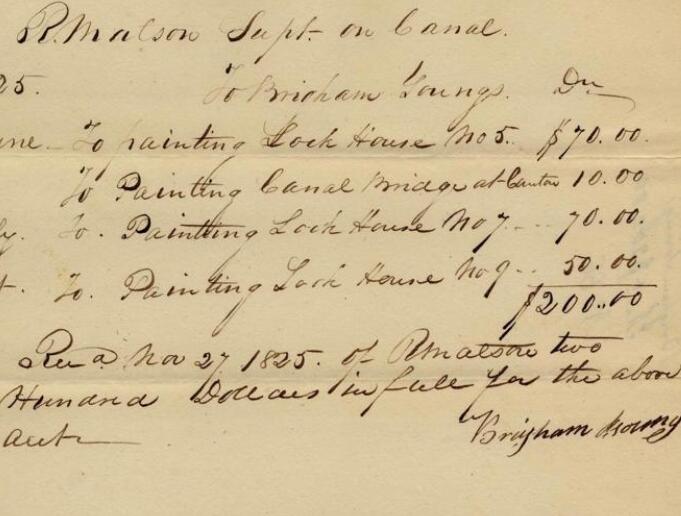 R. Matson Supt. on Canal.
25. To Brigham Youngs. Dr
une - To painting Lock House No 5. $70.00.
To Painting Canal Bridge at Canton 10.00
ly. To. Painting Lock House No 7 - - 70.00.
t. To. Painting Lock House No 9 - - 50.00.
$200.00
Recd. Nov 27 1825. of R Matson two
Hundred Dollars in full for the above
act
Brigham Young